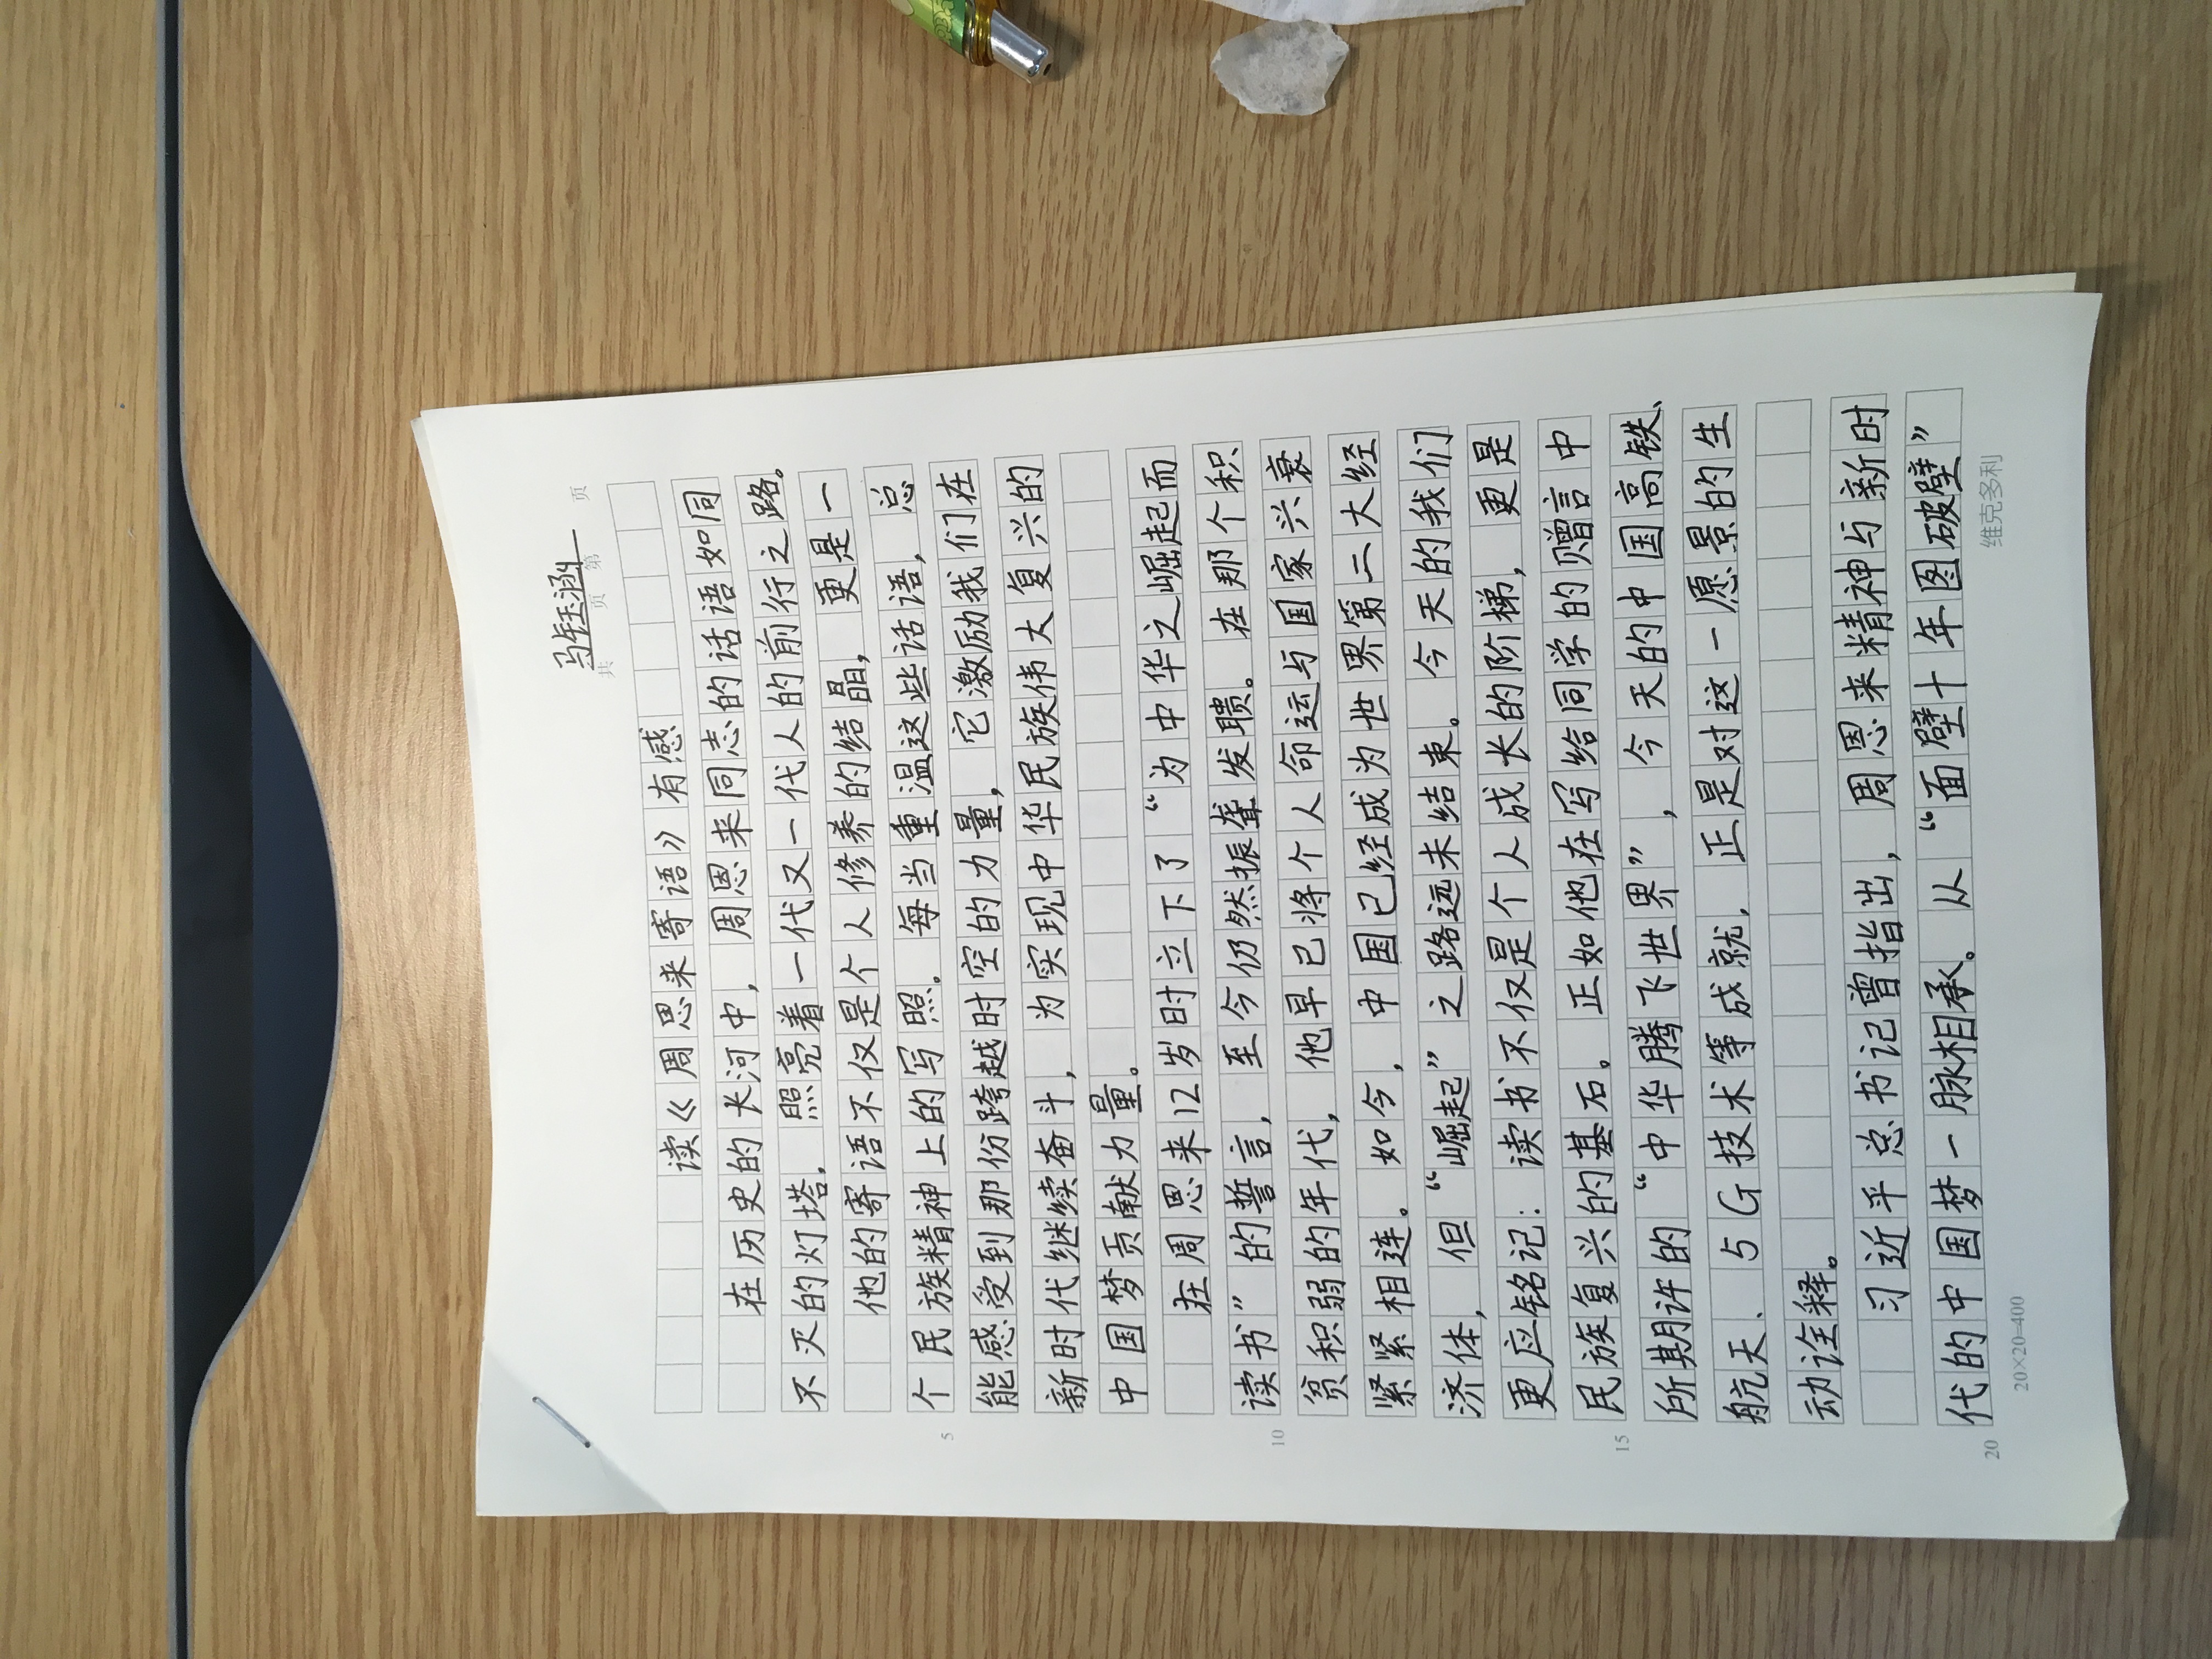 马钰涵
共 页 第 页
读《周思来寄语》有感
在历史的长河中，周恩来同志的话语如同
不灭的灯塔，照亮着一代又一代人的前行之路。
他的寄语不仅是个人修养的结晶，更是一
个民族精神上的写照。每当重温这些话语，总
能感受到那份跨越时空的力量，它激励我们在
新时代继续奋斗，为实现中华民族伟大复兴的
中国梦贡献力量。
在周思来12岁时立下了“为中华之崛起而
读书”的誓言，至今仍然振聋发聩。在那个积
贫积弱的年代，他早已将个人命运与国家兴衰
紧紧相连。如今，中国已经成为世界第二大经
济体，但“崛起”之路远未结束。今天的我们
更应铭记：读书不仅是个人成长的阶梯，更是
民族复兴的基石。正如他在写给同学的赠言中
所期许的“中华腾飞世界”，今天的中国高铁、
航天、5G技术等成就，正是对这一愿景的生
动诠释。
习近平总书记曾指出，周恩来精神与新时
代的中国梦一脉相承。从“面壁十年图破壁”
5
10
15
20
20×20=400
维克多利